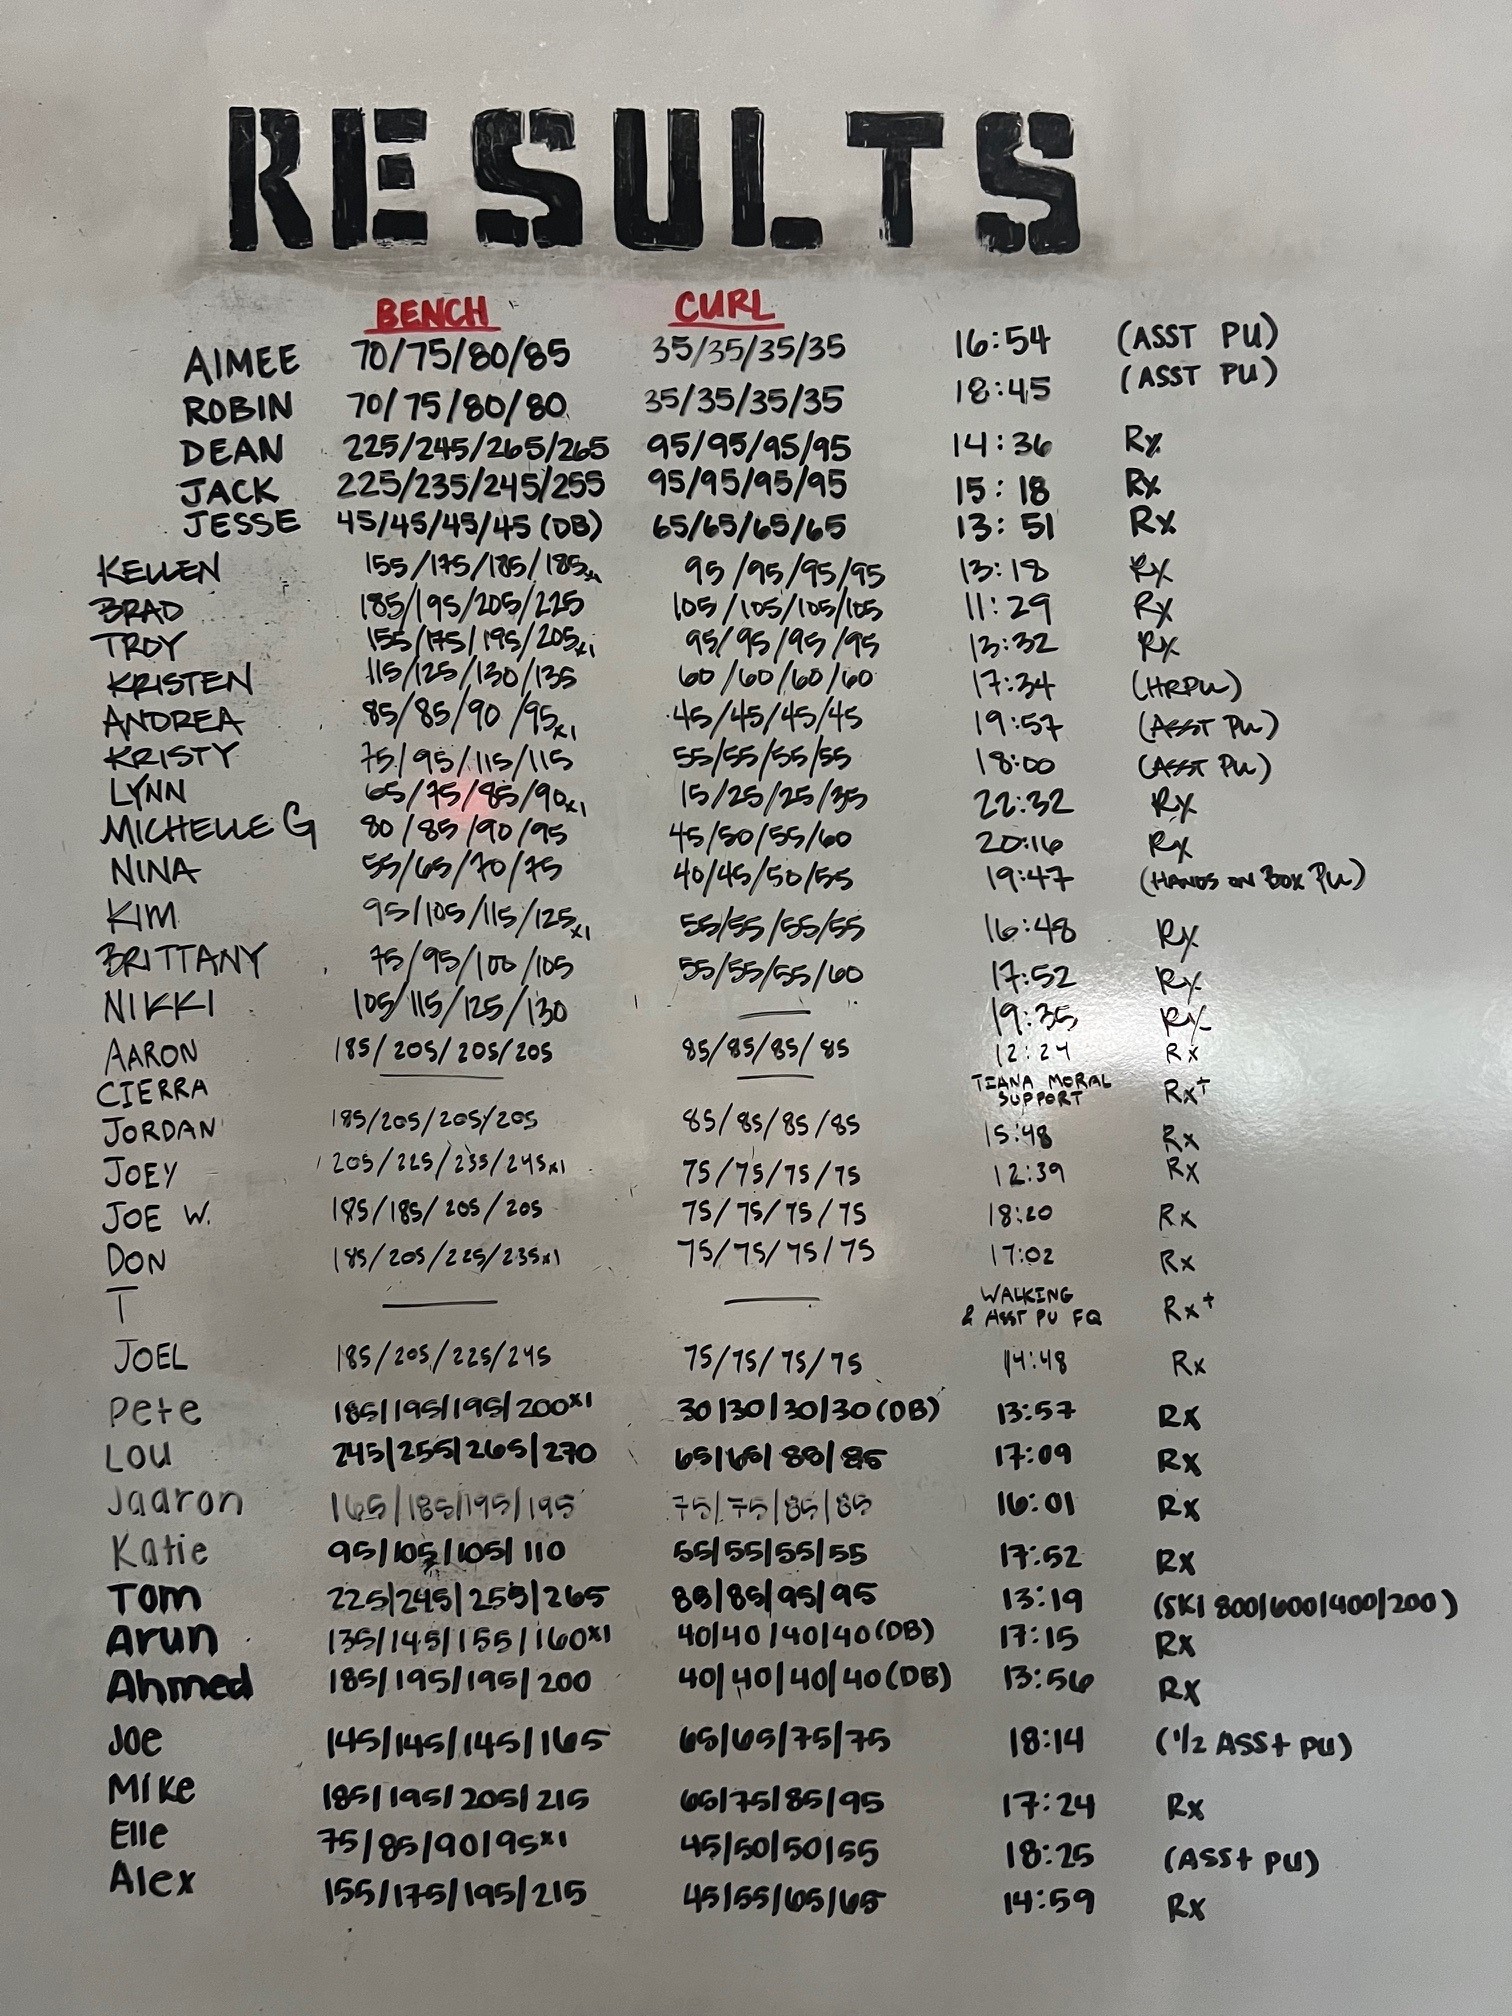 RESULTS
BENCH CURL
AIMEE 70/75/80/85 35/35/35/35 16:54 (ASST PU)
ROBIN 70/75/80/80 35/35/35/35 18:45 (ASST PU)
DEAN 225/245/265/265 95/95/95/95 14:36 Rx
JACK 225/235/245/255 95/95/95/95 15:18 Rx
JESSE 45/45/45/45 (DB) 65/65/65/65 13:51 Rx
KELLEN 155/175/185/185x1 95/95/95/95 13:18 Rx
BRAD 185/195/205/225 105/105/105/105 11:29 Rx
TROY 155/175/195/205x1 95/95/95/95 13:32 Rx
KRISTEN 115/125/130/135 60/60/60/60 17:34 (HRPU)
ANDREA 85/85/90/95x1 45/45/45/45 19:57 (ASST PU)
KRISTY 75/95/115/115 55/55/55/55 18:00 (ASST PU)
LYNN 65/75/85/90x1 15/25/25/35 22:32 Rx
MICHELLE G 80/85/90/95 45/50/55/60 20:16 Rx
NINA 55/65/70/75 40/45/50/55 19:47 (HANDS ON BOX PU)
KIM 95/105/115/125x1 55/55/55/55 16:48 Rx
BRITTANY 75/95/100/105 55/55/55/60 17:52 Rx
NIKKI 105/115/125/130 — 19:35 Rx
AARON 185/205/205/205 85/85/85/85 12:24 Rx
CIERRA — — TIANA MORAL SUPPORT Rx+
JORDAN 185/205/205/205 85/85/85/85 15:48 Rx
JOEY 205/225/235/245x1 75/75/75/75 12:39 Rx
JOE W. 185/185/205/205 75/75/75/75 18:20 Rx
DON 185/205/225/235x1 75/75/75/75 17:02 Rx
T — — WALKING & ASST PU FQ Rx+
JOEL 185/205/225/245 75/75/75/75 14:48 Rx
Pete 185/195/195/200x1 30/30/30/30 (DB) 13:57 Rx
LOU 245/255/265/270 65/65/85/85 17:09 Rx
Jaaron 165/185/195/195 75/75/85/85 16:01 Rx
Katie 95/105/105/110 55/55/55/55 17:52 Rx
Tom 225/245/255/265 85/85/95/95 13:19 (SKI 800/600/400/200)
Arun 135/145/155/160x1 40/40/40/40 (DB) 17:15 Rx
Ahmed 185/195/195/200 40/40/40/40 (DB) 13:56 Rx
Joe 145/145/145/165 65/65/75/75 18:14 (1/2 ASSt PU)
Mike 185/195/205/215 65/75/85/95 17:24 Rx
Elle 75/85/90/95x1 45/50/50/55 18:25 (ASSt PU)
Alex 155/175/195/215 45/55/65/65 14:59 Rx